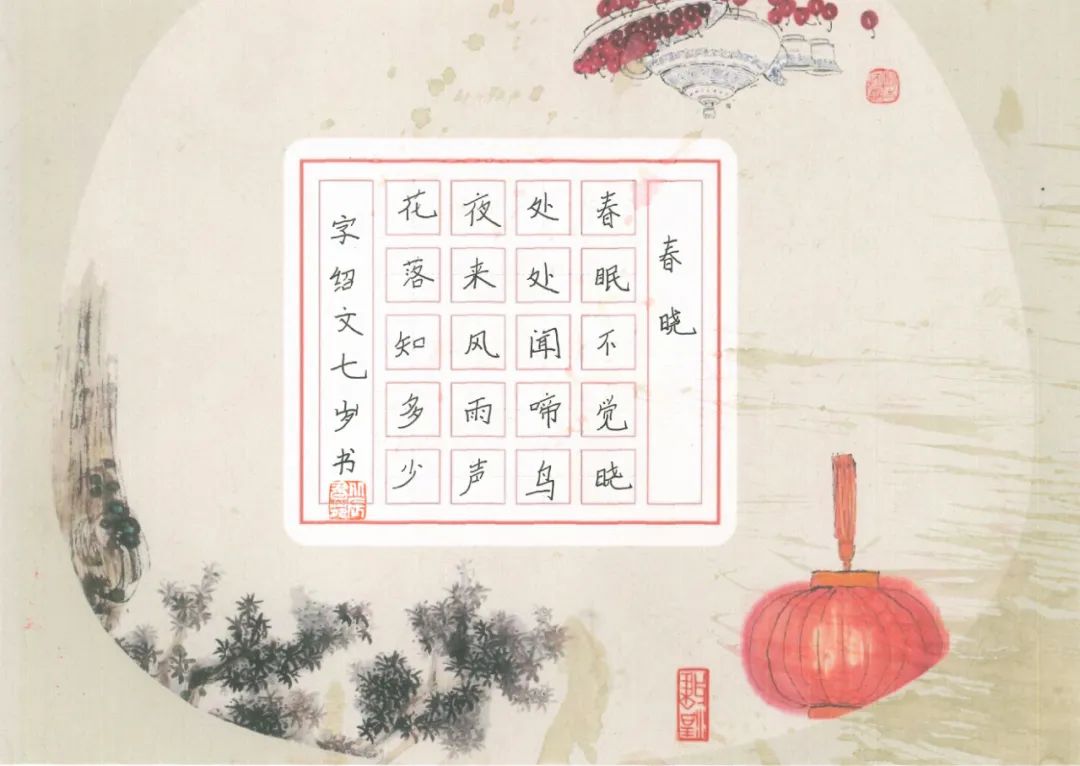 春晓
春眠不觉晓
处处闻啼鸟
夜来风雨声
花落知多少
字绍文七岁书